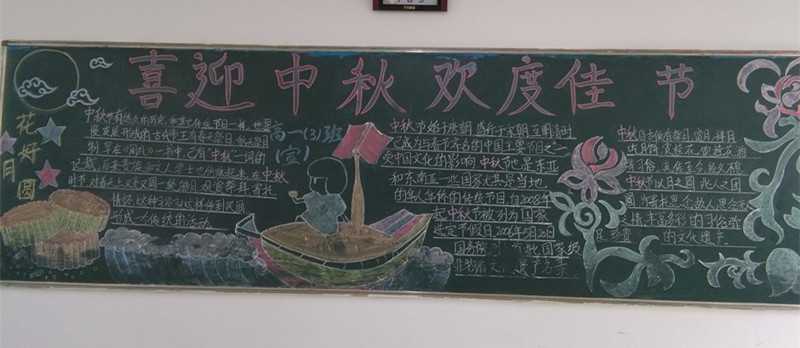 喜迎中秋 欢度佳节
花好
月圆
高一(3)班
(宣)
中秋节有悠久的历史,和其他传统节日一样,也是
慢慢发展形成的,古代帝王有春天祭日,秋天祭月
制,早在《周礼》一书中,已有"中秋"一词的
记载。后来贵族和文人学士也仿效起来,在中秋
时节,对着天上又亮又圆一轮皓月,观赏祭拜,寄托
情怀,这种习俗就这样传到民间
形成一个传统的活动
中秋节始于唐朝,盛行于宋朝,至明清时
已成为与春节齐名的中国主要节日之一
受中国文化的影响,中秋节也是东亚
和东南亚一些国家尤其是当地
的华人华侨的传统节日,自2008年
起中秋节被列为国家
法定节假日。2006年5月20日
国务院
非物质文化遗产名录
中秋自古便有祭月、赏月、拜月
吃月饼、赏桂花、饮桂花酒
等习俗,流传至今,经久不息
中秋节以月之圆兆人之团
圆,为寄托思念故人,思念
的文化遗产